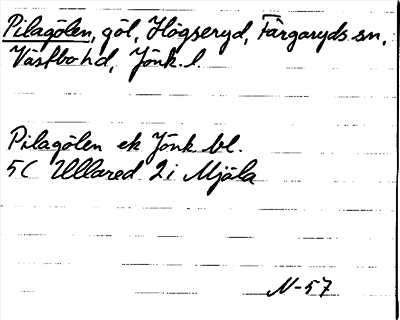 Pilagölen, göl, Högseryd, Färgaryds sn,
Västbo hd, Jönk. l.
Pilagölen ek Jönk. bl.
5C Ullared 2i Mjäla
N-57